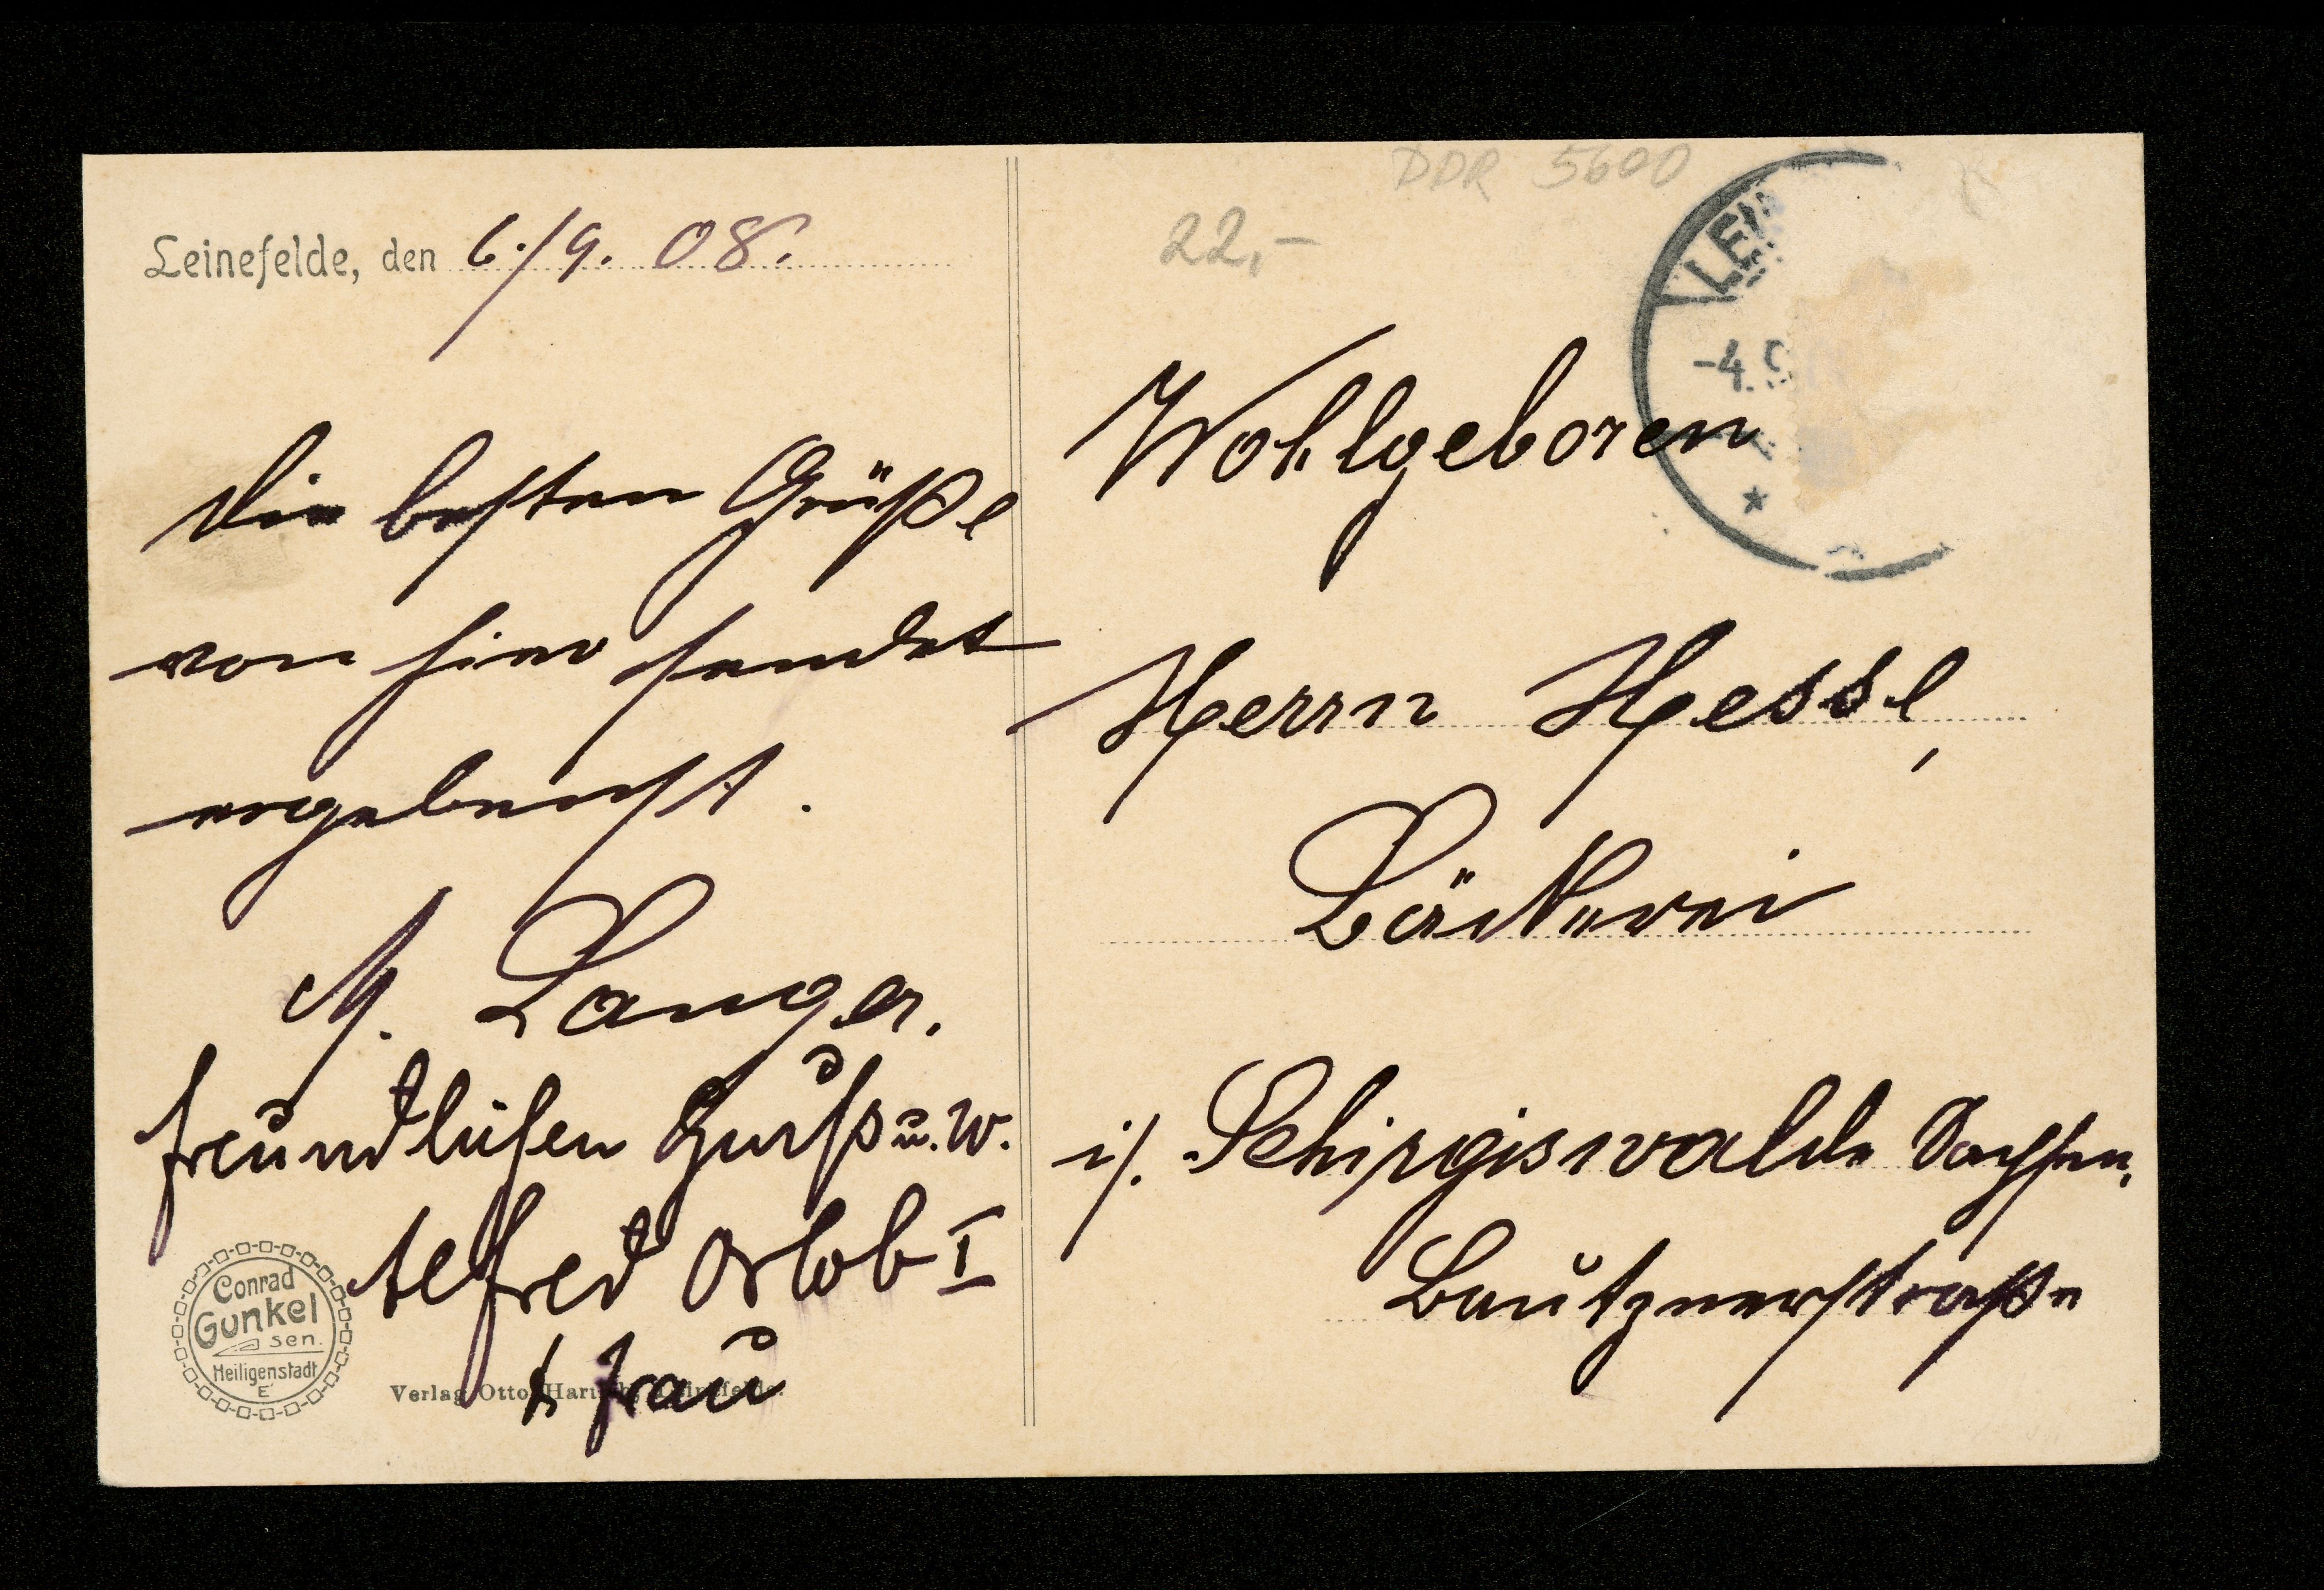 Leinefelde, den 6./9. 08.
Die besten Grüße
von hier sendet
ergebenst.
M. Langer.
freundlichen Gruß u. w.
Alfred Orlob I
& Frau
Conrad
Gunkel
sen.
Heiligenstadt
E.
Verlag Otto
DDR 5600
22,-
LEI
-4. 9
Wohlgeboren
Herrn Hessel,
Bäckerei
i/. Schirgiswalde Sachsen,
Bautznerstraße